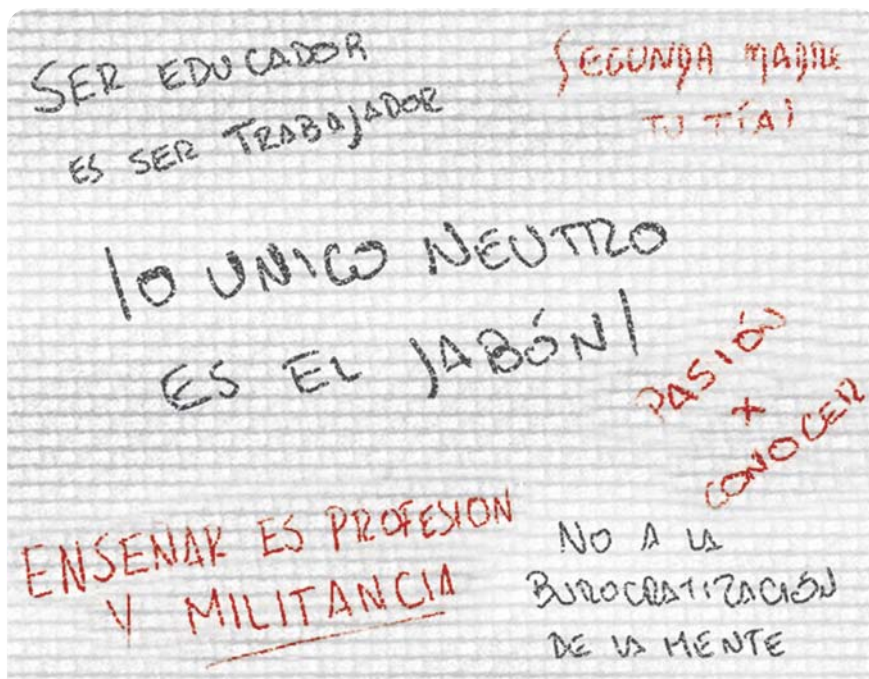 SER EDUCADOR
ES SER TRABAJADOR
SEGUNDA MADRE
TU TÍA!
lO UNICO NEUTRO
ES EL JABÓN!
PASIÓN
X
CONOCER
ENSENAR ES PROFESION
Y MILITANCIA
NO A LA
BUROCRATIZACIÓN
DE LA MENTE